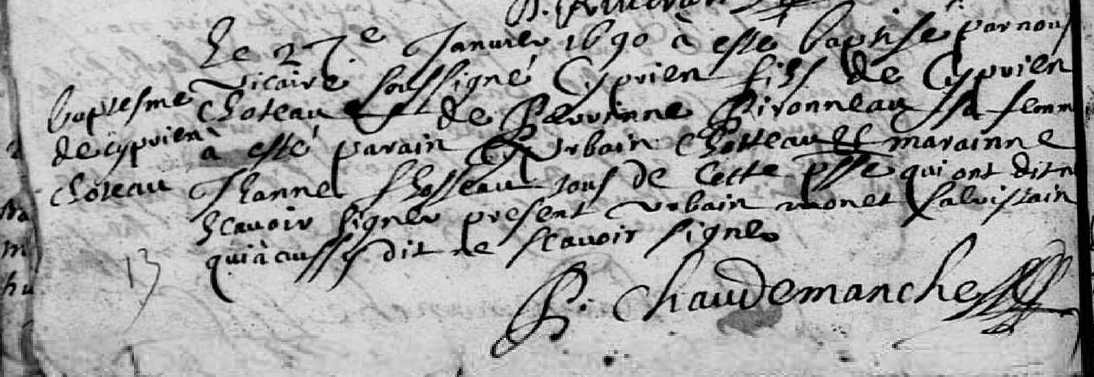 Le 27e Janvier 1690 à esté baptisé par nous
vicaire soussigné Cyprien fils de Cyprien
Choteau et de Perrinne Pironneau sa femme
à esté parain Urbain Chotteau et marainne
Jhanne Chotteau tous de cette psse qui ont dit ne
scavoir signer present urbain monet
qui à aussy dit ne scavoir signer
baptesme
de cyprien
choteau
13
P. Chaudemanche